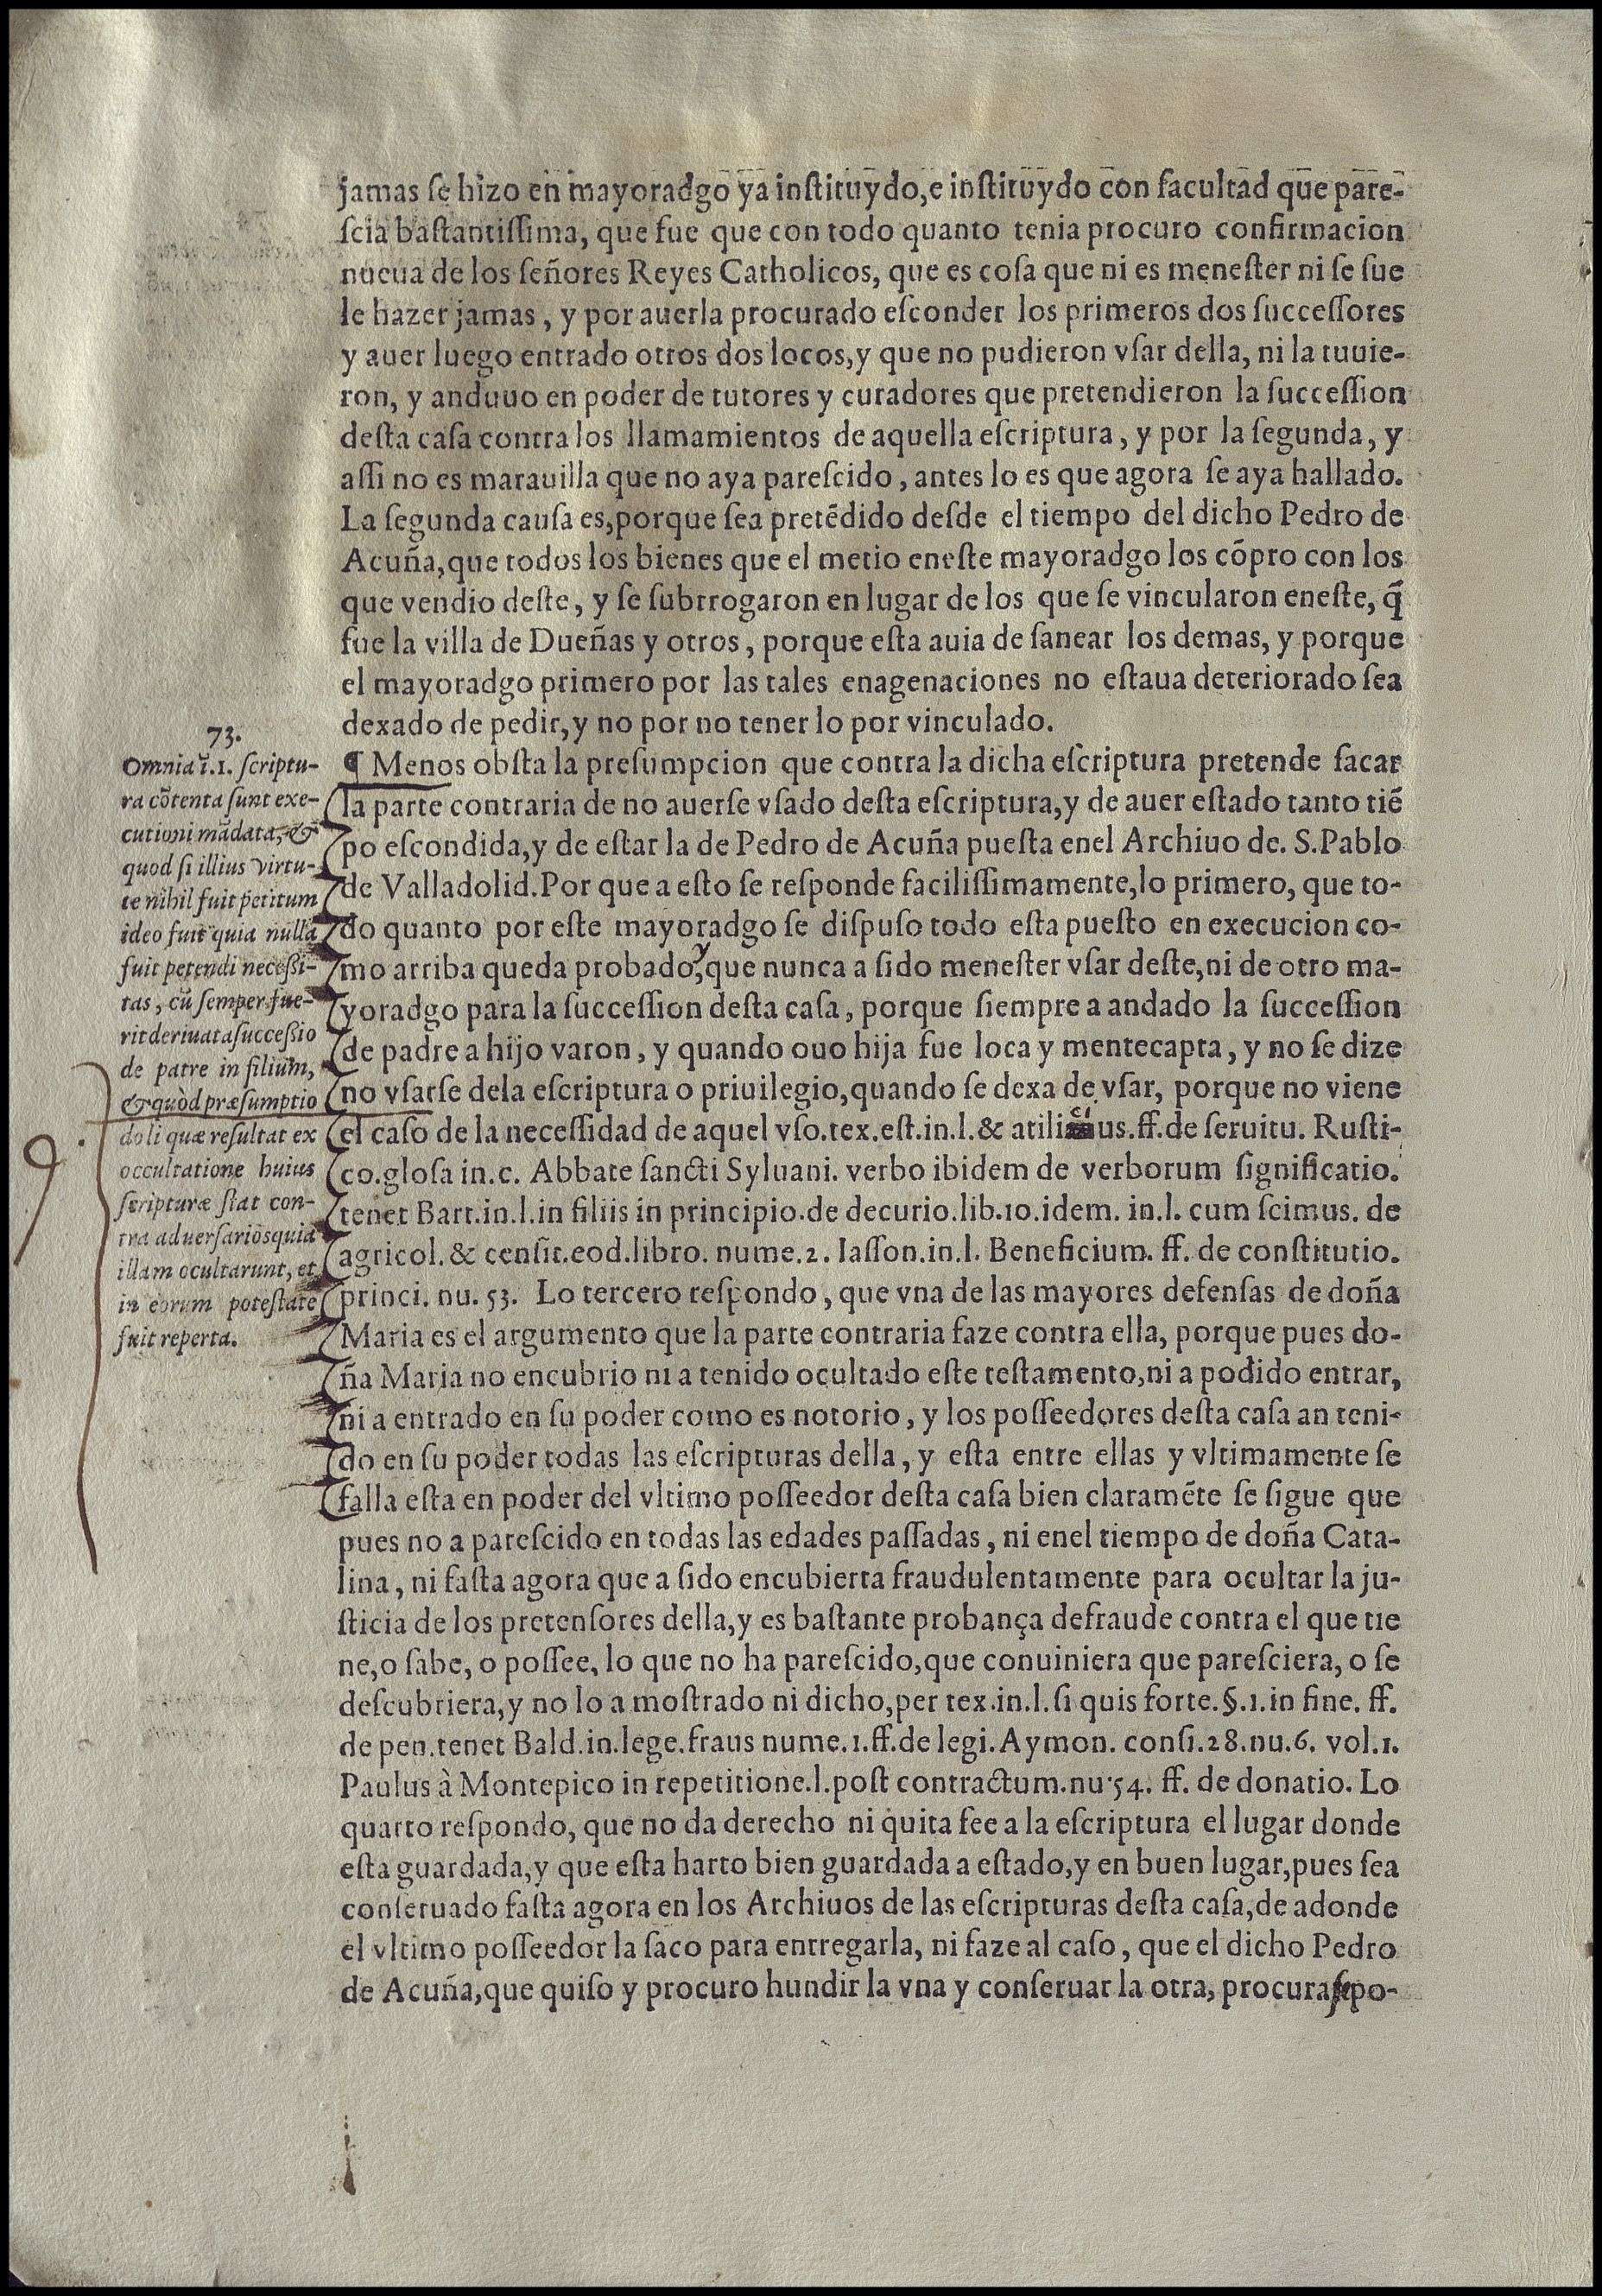 jamas se hizo en mayoradgo ya instituydo, e instituydo con facultad que pare-
scia bastantissima, que fue que con todo quanto tenia procuro confirmacion
nueua de los señores Reyes Catholicos, que es cosa que ni es menester ni se sue
le hazer jamas, y por auerla procurado esconder los primeros dos successores
y auer luego entrado otros dos locos, y que no pudieron vsar della, ni la tuuie-
ron, y anduuo en poder de tutores y curadores que pretendieron la succession
desta casa contra los llamamientos de aquella escriptura, y por la segunda, y
assi no es marauilla que no aya parescido, antes lo es que agora se aya hallado.
La segunda causa es, porque sea pretẽdido desde el tiempo del dicho Pedro de
Acuña, que todos los bienes que el metio eneste mayoradgo los cõpro con los
que vendio deste, y se subrrogaron en lugar de los que se vincularon eneste, q̃
fue la villa de Dueñas y otros, porque esta auia de sanear los demas, y porque
el mayoradgo primero por las tales enagenaciones no estaua deteriorado sea
dexado de pedir, y no por no tener lo por vinculado.
¶ Menos obsta la presumpcion que contra la dicha escriptura pretende sacar
la parte contraria de no auerse vsado desta escriptura, y de auer estado tanto tiẽ
po escondida, y de estar la de Pedro de Acuña puesta enel Archiuo de. S. Pablo
de Valladolid. Por que a esto se responde facilissimamente, lo primero, que to-
do quanto por este mayoradgo se dispuso todo esta puesto en execucion co-
mo arriba queda probado, y que nunca a sido menester vsar deste, ni de otro ma-
yoradgo para la succession desta casa, porque siempre a andado la succession
de padre a hijo varon, y quando ouo hija fue loca y mentecapta, y no se dize
no vsarse dela escriptura o priuilegio, quando se dexa de vsar, porque no viene
el caso de la necessidad de aquel vso. tex. est. in. l. & atilicius. ff. de seruitu. Rusti-
co. glosa in. c. Abbate sancti Syluani. verbo ibidem de verborum significatio.
tenet Bart. in. l. in filiis in principio. de decurio. lib. 10. idem. in. l. cum scimus. de
agricol. & censit. eod. libro. nume. 2. Iasson. in. l. Beneficium. ff. de constitutio.
princi. nu. 53. Lo tercero respondo, que vna de las mayores defensas de doña
Maria es el argumento que la parte contraria faze contra ella, porque pues do-
ña Maria no encubrio ni a tenido ocultado este testamento, ni a podido entrar,
ni a entrado en su poder como es notorio, y los posseedores desta casa an teni-
do en su poder todas las escripturas della, y esta entre ellas y vltimamente se
falla esta en poder del vltimo posseedor desta casa bien claramẽte se sigue que
pues no a parescido en todas las edades passadas, ni enel tiempo de doña Cata-
lina, ni fasta agora que a sido encubierta fraudulentamente para ocultar la ju-
sticia de los pretensores della, y es bastante probança defraude contra el que tie
ne, o sabe, o possee, lo que no ha parescido, que conuiniera que paresciera, o se
descubriera, y no lo a mostrado ni dicho, per tex. in. l. si quis forte. §. 1. in fine. ff.
de pen. tenet Bald. in. lege. fraus nume. 1. ff. de legi. Aymon. consi. 28. nu. 6. vol. 1.
Paulus à Montepico in repetitione. l. post contractum. nu. 54. ff. de donatio. Lo
quarto respondo, que no da derecho ni quita fee a la escriptura el lugar donde
esta guardada, y que esta harto bien guardada a estado, y en buen lugar, pues sea
conseruado fasta agora en los Archiuos de las escripturas desta casa, de adonde
el vltimo posseedor la saco para entregarla, ni faze al caso, que el dicho Pedro
de Acuña, que quiso y procuro hundir la vna y conseruar la otra, procurase po-
73.
Omnia ĩ. 1. scriptu-
ra cõtenta sunt exe-
cutioni mãdata, &
quod si illius virtu-
te nihil fuit petitum
ideo fuit quia nulla
fuit petendi necessi-
tas, cũ semper fue-
rit deriuata successio
de patre in filium,
& quòd præsumptio
doli quæ resultat ex
occultatione huius
scripturæ stat con-
tra aduersarios quia
illam ocultarunt, et
in eorum potestate
fuit reperta.